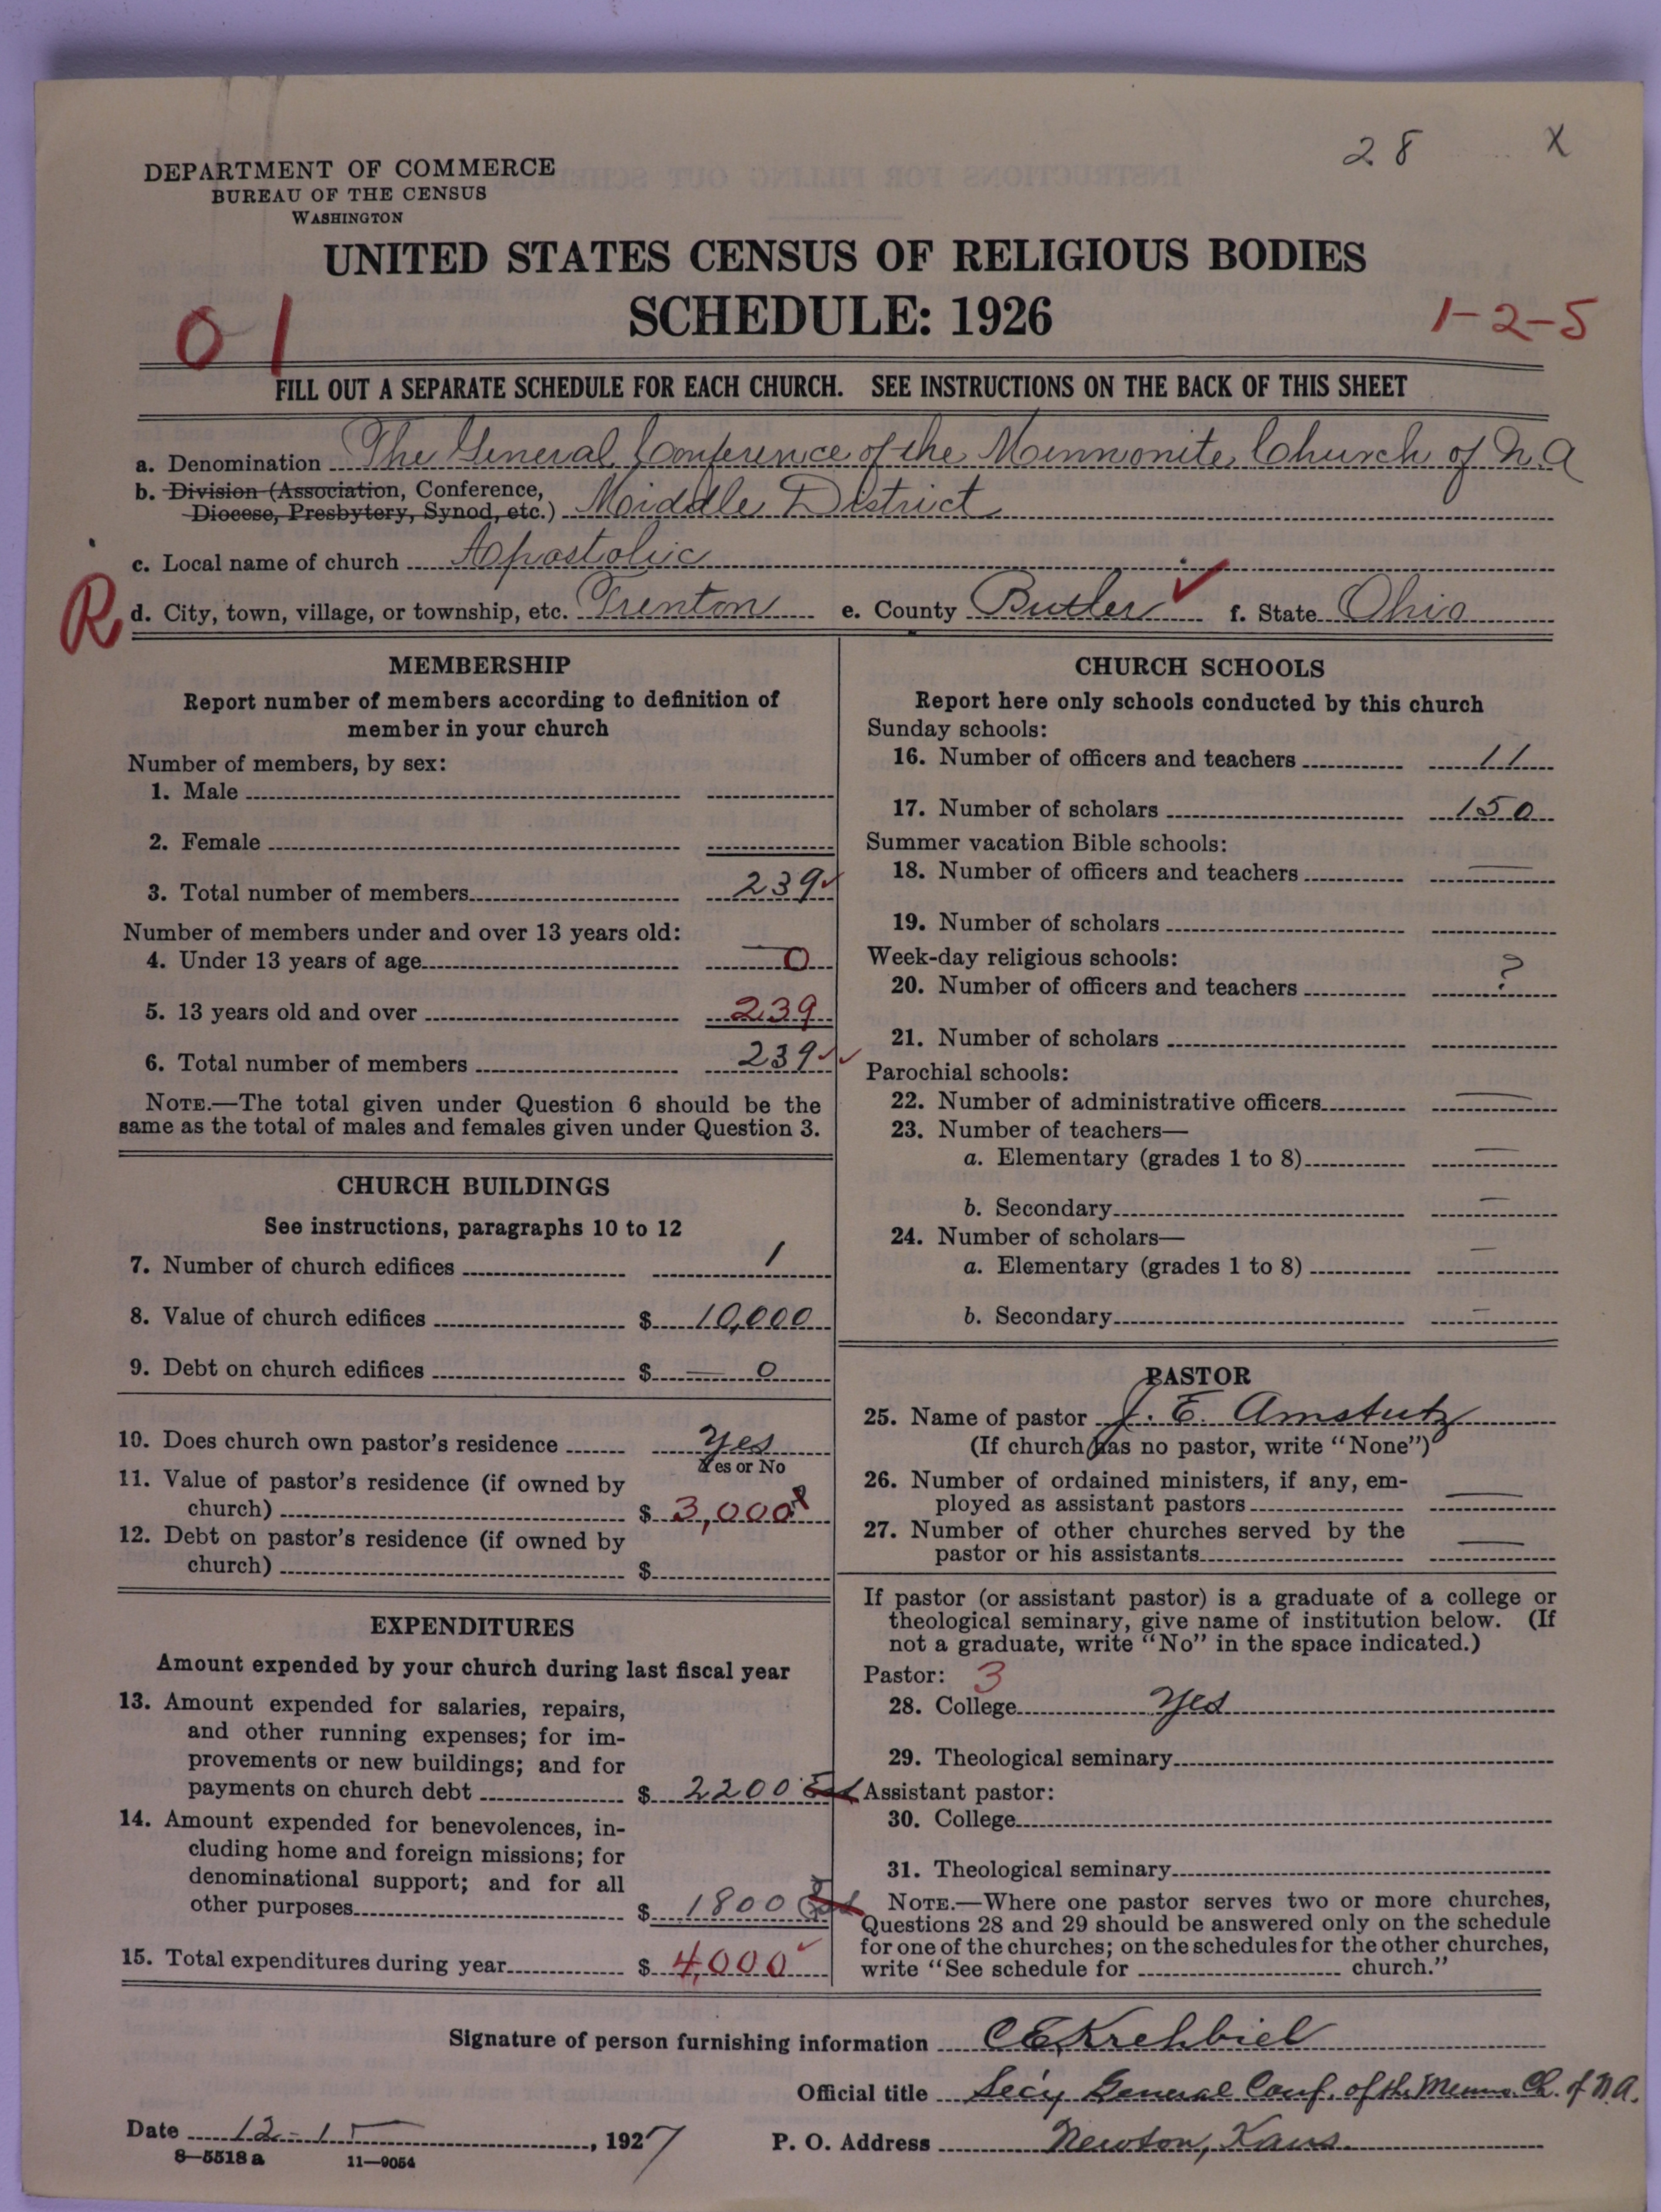 28 X
DEPARTMENT OF COMMERCE
BUREAU OF THE CENSUS
WASHINGTON
UNITED STATES CENSUS OF RELIGIOUS BODIES
SCHEDULE: 1926
01
1-2-5
FILL OUT A SEPARATE SCHEDULE FOR EACH CHURCH. SEE INSTRUCTIONS ON THE BACK OF THIS SHEET
a. Denomination The General Conference of the Mennonite Church of N.A
b. Division (Association, Conference,
Diocese, Presbytery, Synod, etc.) Middle District
c. Local name of church Apostolic
R d. City, town, village, or township, etc. Trenton e. County Butler ✓ f. State Ohio
MEMBERSHIP
Report number of members according to definition of
member in your church
Number of members, by sex:
1. Male
2. Female
3. Total number of members 239 ✓
Number of members under and over 13 years old:
4. Under 13 years of age 0
5. 13 years old and over 239
6. Total number of members 239 ✓✓
NOTE.—The total given under Question 6 should be the
same as the total of males and females given under Question 3.
CHURCH BUILDINGS
See instructions, paragraphs 10 to 12
7. Number of church edifices 1
8. Value of church edifices $ 10,000
9. Debt on church edifices $ — 0
10. Does church own pastor's residence Yes
Yes or No
11. Value of pastor's residence (if owned by
church) $ 3,000
12. Debt on pastor's residence (if owned by
church) $
EXPENDITURES
Amount expended by your church during last fiscal year
13. Amount expended for salaries, repairs,
and other running expenses; for im-
provements or new buildings; and for
payments on church debt $ 2200
14. Amount expended for benevolences, in-
cluding home and foreign missions; for
denominational support; and for all
other purposes $ 1800
15. Total expenditures during year $ 4,000 ✓
CHURCH SCHOOLS
Report here only schools conducted by this church
Sunday schools:
16. Number of officers and teachers 11
17. Number of scholars 150
Summer vacation Bible schools:
18. Number of officers and teachers —
19. Number of scholars
Week-day religious schools:
20. Number of officers and teachers ?
21. Number of scholars
Parochial schools:
22. Number of administrative officers —
23. Number of teachers—
a. Elementary (grades 1 to 8) —
b. Secondary —
24. Number of scholars—
a. Elementary (grades 1 to 8) —
b. Secondary —
PASTOR
25. Name of pastor J. E. Amstutz
(If church has no pastor, write "None")
26. Number of ordained ministers, if any, em-
ployed as assistant pastors —
27. Number of other churches served by the
pastor or his assistants —
If pastor (or assistant pastor) is a graduate of a college or
theological seminary, give name of institution below. (If
not a graduate, write "No" in the space indicated.)
Pastor: 3
28. College Yes
29. Theological seminary
Assistant pastor:
30. College
31. Theological seminary
NOTE.—Where one pastor serves two or more churches,
Questions 28 and 29 should be answered only on the schedule
for one of the churches; on the schedules for the other churches,
write "See schedule for church."
Signature of person furnishing information C E Krehbiel
Official title Secy General Conf. of the Menn. Ch. of N.A.
Date 12-15, 1927 P. O. Address Newton, Kans
8—5518 a 11—9054